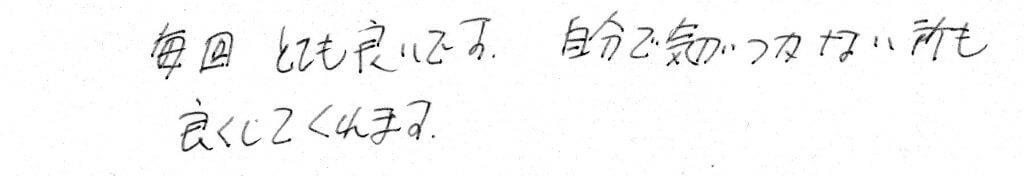 毎回 とても良いです. 自分で気がつかない所も
良くしてくれます.